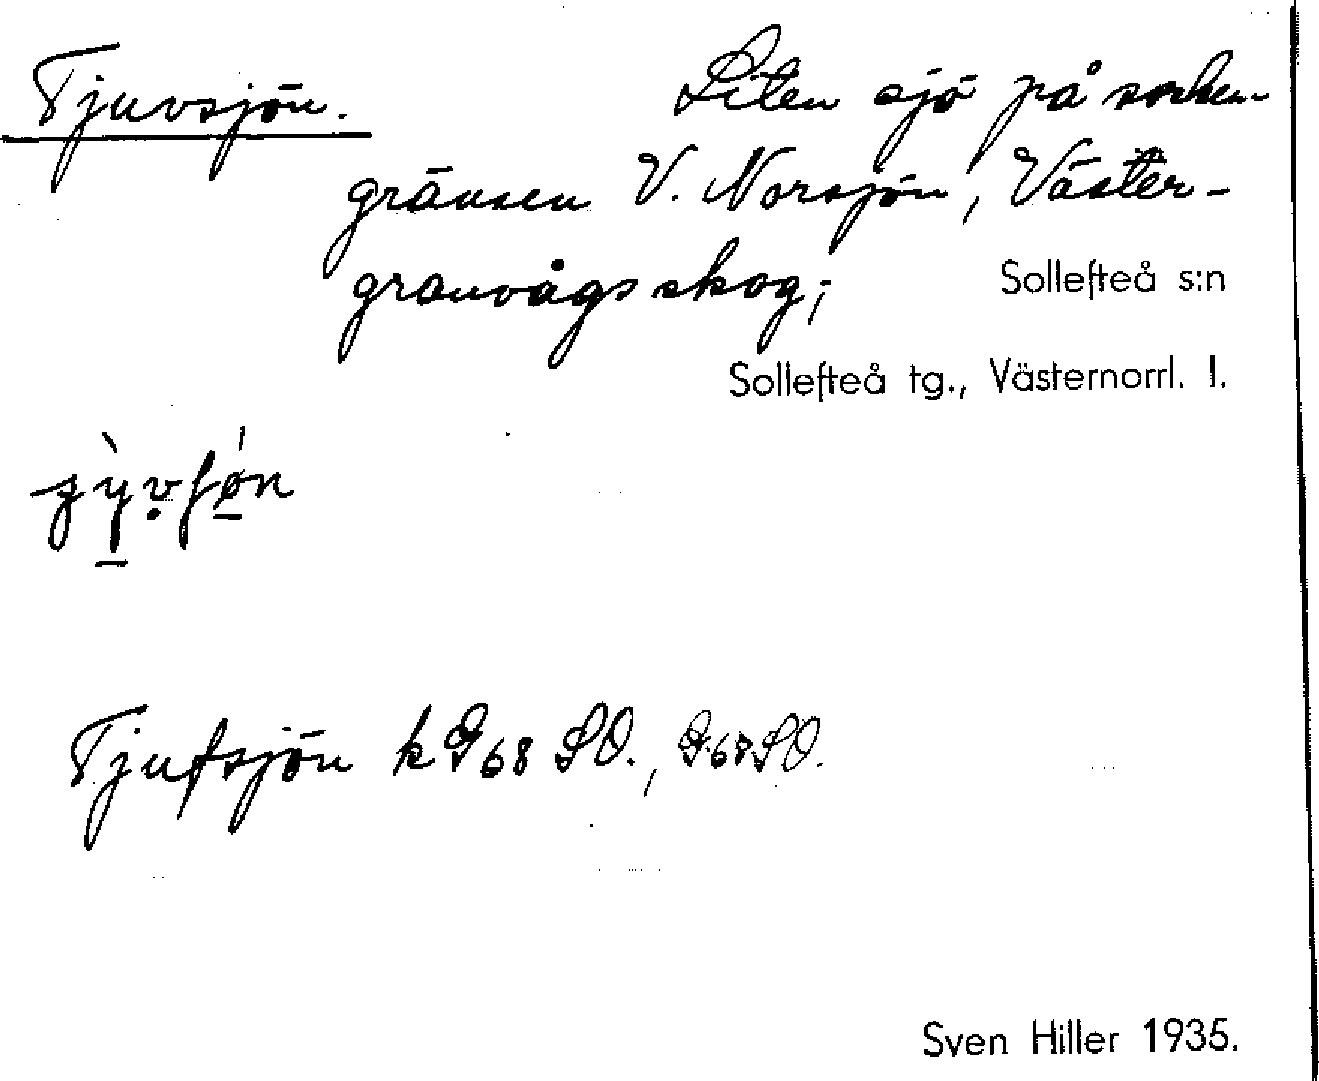 Tjuvsjön. Liten sjö på socken-
gränsen V. Norsjön, Väster-
granvågs skog; Sollefteå s:n
Sollefteå tg., Västernorrl. l.
Tjufsjön k G68 SO., G68SO.
Sven Hiller 1935.